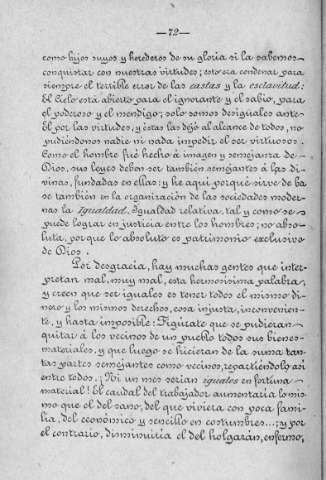 —72—
como hijos suyos y herederos de su gloria si la sabemos
conquistar con nuestras virtudes; esto era condenar para
siempre el terrible error de las castas y la esclavitud:
El Cielo está abierto para el ignorante y el sabio, para
el poderoso y el mendigo; solo somos desiguales ante
Él por las virtudes, y éstas las dejó al alcance de todos, no
pudiéndonos nadie ni nada impedir el ser virtuosos.
Como el hombre fué hecho á imagen y semejanza de
Dios, sus leyes deben ser también semejantes á las di-
vinas, fundadas en ellas; y he aquí porqué sirve de ba
se también en la organización de las sociedades moder-
nas la Igualdad. Igualdad relativa, tal y como se
puede lograr en justicia entre los hombres; no abso-
luta, porque lo absoluto es patrimonio exclusivo
de Dios.
Por desgracia, hay muchas gentes que inter-
pretan mal, muy mal, esta hermosísima palabra,
y creen que ser iguales es tener todos el mismo di-
nero y los mismos derechos, cosa injusta, inconvenien-
te, y hasta imposible: Figúrate que se pudieran
quitar á los vecinos de un pueblo todos sus bienes
materiales, y que luego se hicieran de la suma tan-
tas partes semejantes como vecinos, repartiéndolo así
entre todos. ¡Ni un mes serían iguales en fortuna
material! El caudal del trabajador aumentaría lo mis
mo que el del sano, del que viviera con poca fami-
lia, del económico y sencillo en costumbres...; y por
el contrario, disminuiría el del holgazán, enfermo,